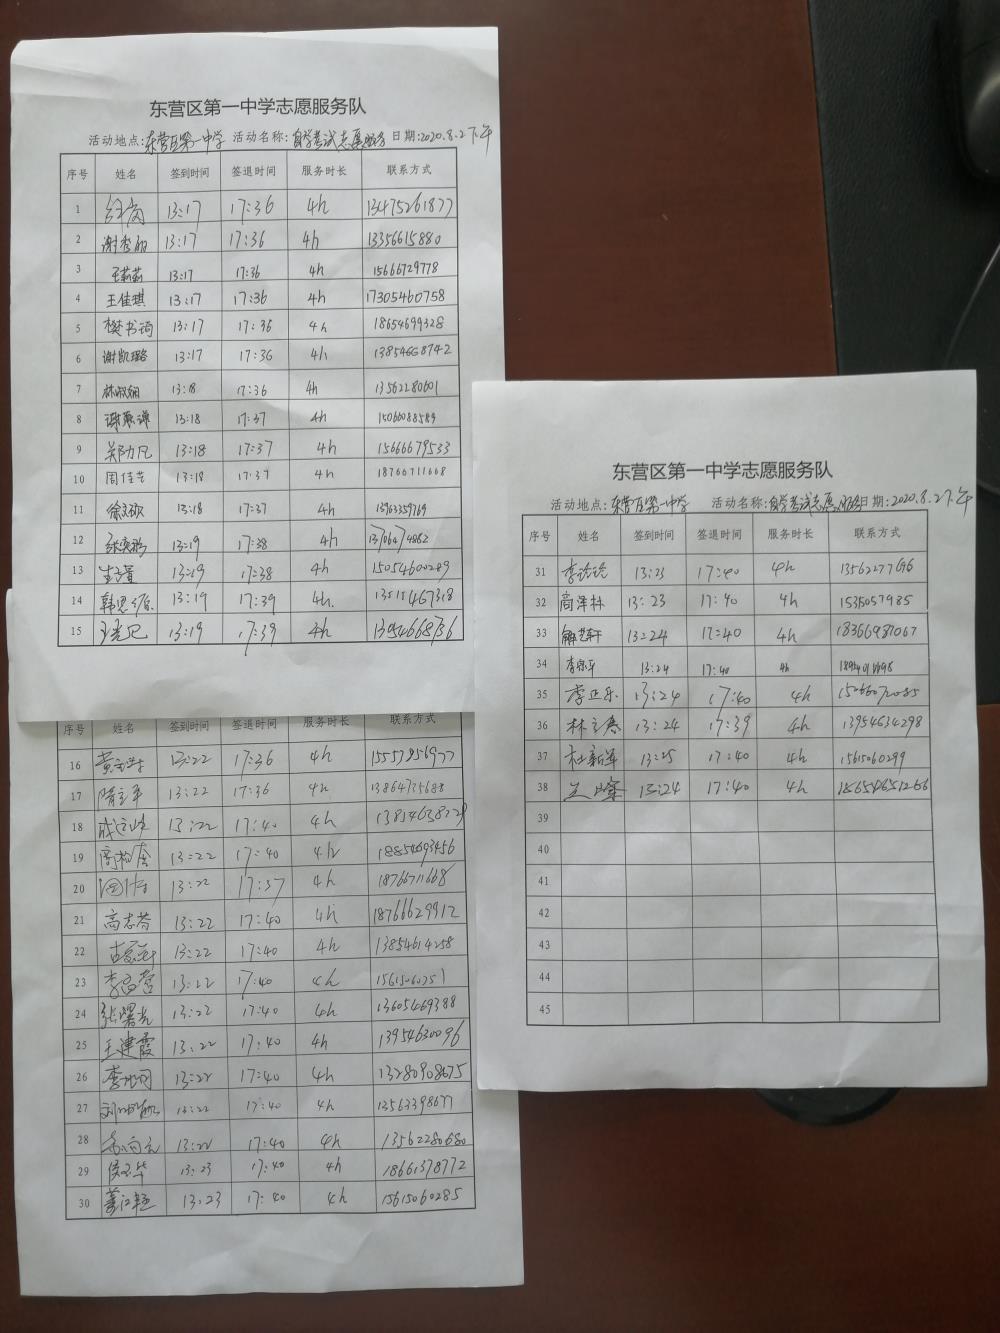 东营区第一中学志愿服务队
活动地点:东营区第一中学 活动名称:自学考试志愿服务 日期:2020.8.2下午
序号 姓名 签到时间 签退时间 服务时长 联系方式
1 13:17 17:36 4h 13475261877
2 谢秀丽 13:17 17:36 4h 13356615880
3 王茹茹 13:17 17:36 4h 15666729778
4 王佳琪 13:17 17:36 4h 17305460758
5 樊书询 13:17 17:36 4h 18654699328
6 谢凯璐 13:17 17:36 4h 13854668742
7 林淑娟 13:18 17:36 4h 13562280601
8 13:18 17:37 4h 15060088589
9 郑力凡 13:18 17:37 4h 15666679533
10 周佳艺 13:18 17:37 4h 18766711668
11 13:18 17:37 4h 13963359769
12 13:19 17:38 4h
13 13:19 17:38 4h 15054600289
14 13:19 17:39 4h.
15 13:19 17:39 4h 13954668736
序号 姓名 签到时间 签退时间 服务时长 联系方式
16 13:22 17:36 4h
17 隋立平 13:22 17:36 4h 13864735688
18 13:22 17:40 4h
19 13:22 17:40 4h 18854693456
20 13:22 17:37 4h 18766711668
21 高志芬 13:22 17:40 4h 18766629912
22 13:22 17:40 4h 13854614258
23 13:22 17:40 4h 15615060251
24 张曙光 13:22 17:40 4h 13605469388
25 王建霞 13:22 17:40 4h 13954630096
26 13:22 17:40 4h 13280908675
27 13:22 17:40 4h 13563398677
28 13:22 17:40 4h 13562280680
29 13:23 17:40 4h 18661378772
30 13:23 17:40 4h 15615060285
东营区第一中学志愿服务队
活动地点:东营区第一中学 活动名称:自学考试志愿服务 日期:2020.8.2下午
序号 姓名 签到时间 签退时间 服务时长 联系方式
31 李玲玲 13:23 17:40 4h 13562277696
32 高泽林 13:23 17:40 4h 1535057985
33 解艺轩 13:24 17:40 4h 18366987067
34 13:24 17:40 4h
35 李正乐 13:24 17:40 4h 15066072085
36 林立春 13:24 17:39 4h 13954634298
37 杜新军 13:25 17:40 4h 15615060299
38 13:24 17:40 4h
39
40
41
42
43
44
45